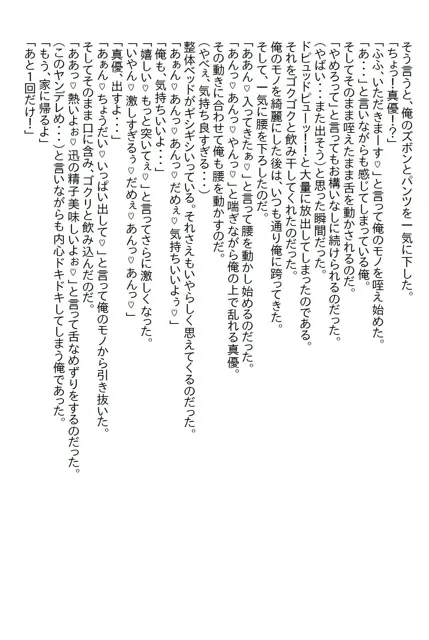 そう言うと、俺のズボンとパンツを一気に下した。
「ちょっ!真優!?」
「ふふ、いただきまーす♡」と言って俺のモノを咥え始めた。
「あ・・・」と言いながらも感じてしまっている俺。
そしてそのまま咥えたまま舌を動かされるのだ。
「やめろって」と言ってもお構いなしに続けられるのだった。
(やばい・・・また出そう)と思った瞬間だった。
ドビュッドビューッ!!と大量に放出してしまったのである。
それをゴクゴクと飲み干してくれたのだった。
俺のモノを綺麗にした後は、いつも通り俺に跨ってきた。
そして、一気に腰を下ろしたのだ。
「ああん♡入ってきたぁ♡」と言って腰を動かし始めるのだった。
「あんっ♡あんっ♡やんっ♡」と喘ぎながら俺の上で乱れる真優。
その動きに合わせて俺も腰を動かすのだ。
(やべぇ、気持ち良すぎる・・・)
整体ベッドがギシギシいっている。それさえもいやらしく思えてくるのだった。
「あぁん♡あんっ♡あんっ♡だめぇ♡気持ちいいよぅ♡」
「俺も、気持ちいいよ・・・」
「嬉しい♡もっと突いてぇ♡」と言ってさらに激しくなった。
「いやん♡激しすぎるぅ♡だめぇ♡あんっ♡あんっ♡」
「真優、出すよ・・・」
「あぁん♡ちょうだい♡いっぱい出して♡」と言って俺のモノから引き抜いた。
そしてそのまま口に含み、ゴクリと飲み込んだのだ。
「ああっ♡熱いよぉ♡迅の精子美味しいよぉ♡」と言って舌なめずりをするのだった。
(このヤンデレめ・・・)と言いながらも内心ドキドキしてしまう俺であった。
「もう、家に帰るよ」
「あと1回だけ!」